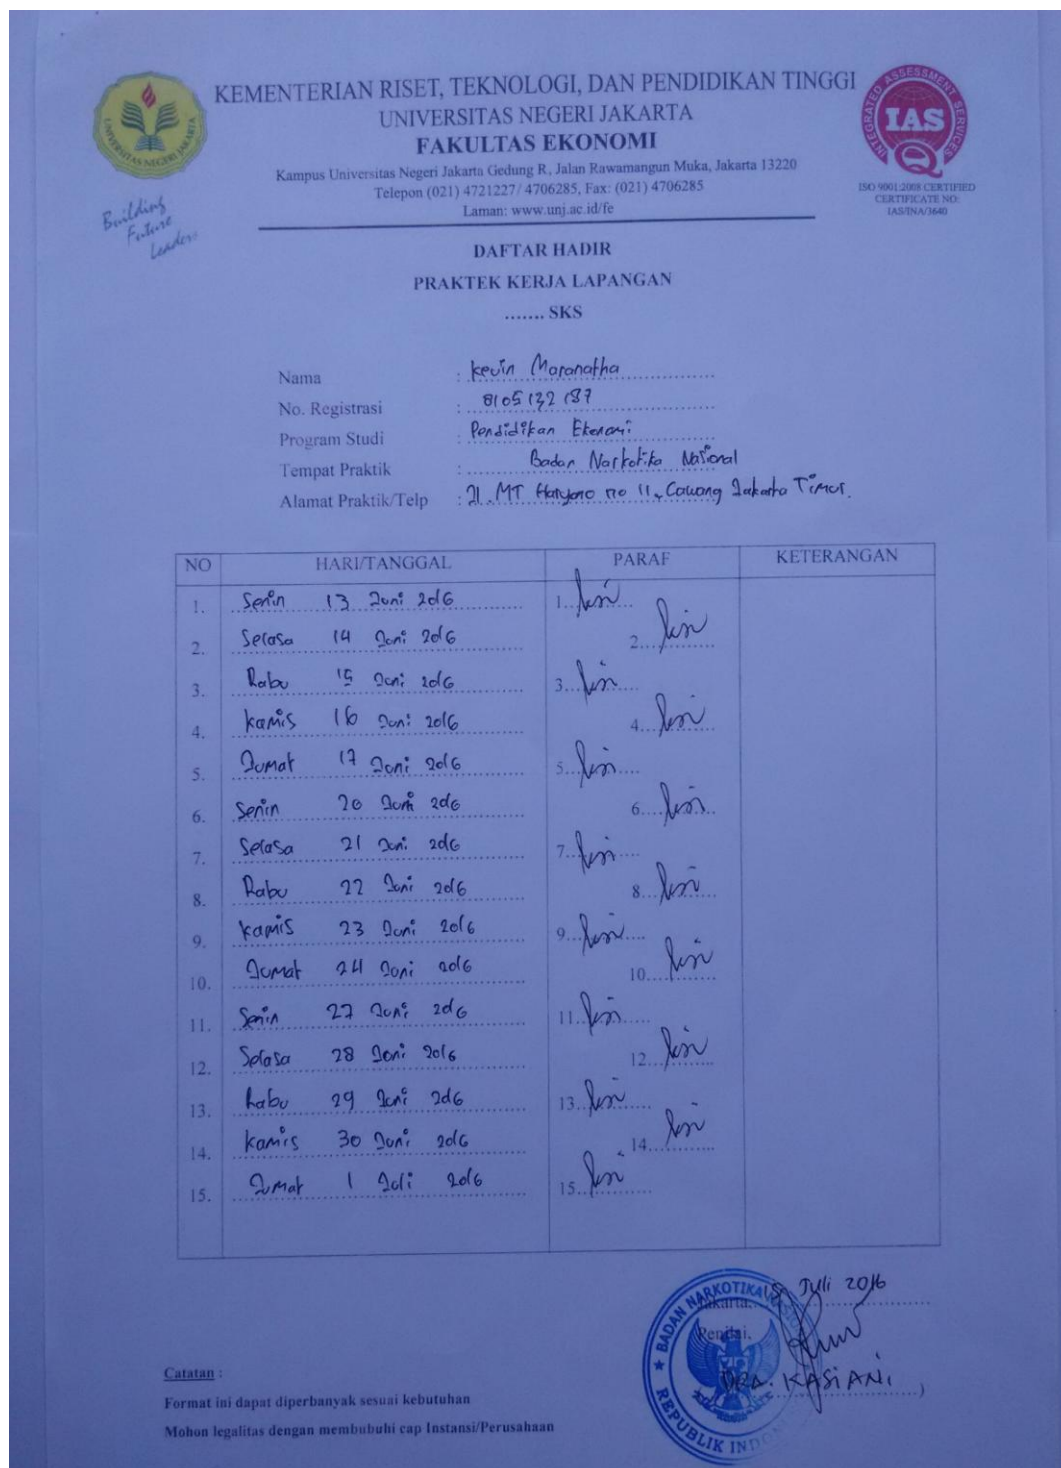 KEMENTERIAN RISET, TEKNOLOGI, DAN PENDIDIKAN TINGGI
UNIVERSITAS NEGERI JAKARTA
FAKULTAS EKONOMI
Kampus Universitas Negeri Jakarta Gedung R, Jalan Rawamangun Muka, Jakarta 13220
Telepon (021) 4721227/ 4706285, Fax: (021) 4706285
Laman: www.unj.ac.id/fe
UNIVERSITAS NEGERI JAKARTA
Building
Future
Leaders
INTEGRATED ASSESSMENT SERVICES
IAS
Q
ISO 9001:2008 CERTIFIED
CERTIFICATE NO:
IAS/INA/3640
DAFTAR HADIR
PRAKTEK KERJA LAPANGAN
....... SKS
Nama : Kevin Maranatha
No. Registrasi : 8105132187
Program Studi : Pendidikan Ekonomi
Tempat Praktik : Badan Narkotika Nasional
Alamat Praktik/Telp : Jl. MT Haryono no 11, Cawang Jakarta Timur.
NO HARI/TANGGAL PARAF KETERANGAN
1. Senin 13 Juni 2016 1.
2. Selasa 14 Juni 2016 2.
3. Rabu 15 Juni 2016 3.
4. Kamis 16 Juni 2016 4.
5. Jumat 17 Juni 2016 5.
6. Senin 20 Juni 2016 6.
7. Selasa 21 Juni 2016 7.
8. Rabu 22 Juni 2016 8.
9. Kamis 23 Juni 2016 9.
10. Jumat 24 Juni 2016 10.
11. Senin 27 Juni 2016 11.
12. Selasa 28 Juni 2016 12.
13. Rabu 29 Juni 2016 13.
14. Kamis 30 Juni 2016 14.
15. Jumat 1 Juli 2016 15.
Jakarta, Juli 2016
Penilai,
DRA. KASIANI
BADAN NARKOTIKA
REPUBLIK
Catatan :
Format ini dapat diperbanyak sesuai kebutuhan
Mohon legalitas dengan membubuhi cap Instansi/Perusahaan